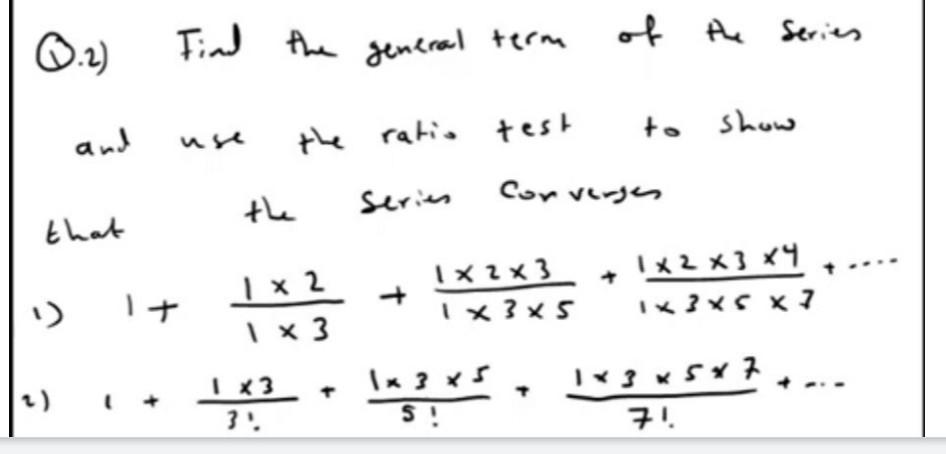 Q.2) Find the general term of the Series
and use the ratio test to show
that the Series Converges
1) 1 + \frac{1 × 2}{1 × 3} + \frac{1 × 2 × 3}{1 × 3 × 5} + \frac{1 × 2 × 3 × 4}{1 × 3 × 5 × 7} + ....
2) 1 + \frac{1 × 3}{3!} + \frac{1 × 3 × 5}{5!} + \frac{1 × 3 × 5 × 7}{7!} + ...